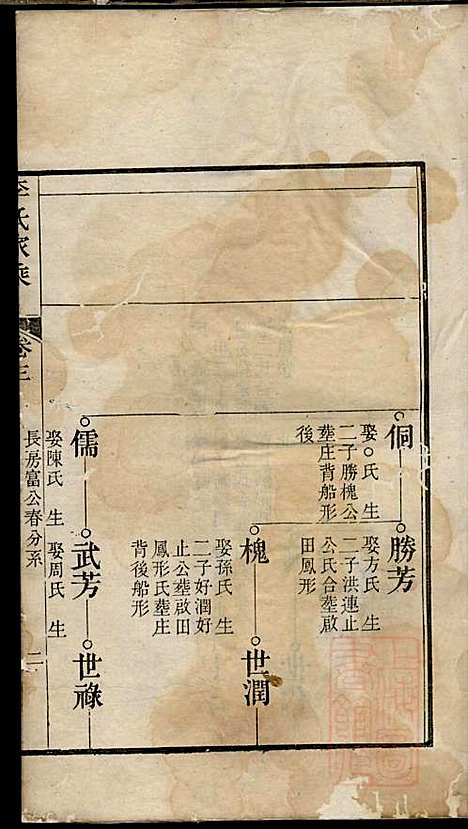 侗
娶○氏 生
二子勝槐公
塟庄背船形
後
勝芳
娶方氏 生
二子洪連止
公氏合塟啟
田鳳形
槐
娶孫氏 生
二子好潤好
止公塟啟田
鳳形氏塟庄
背後船形
世潤
儒
娶陳氏 生
武芳
娶周氏 生
世祿
長房富公春分系
李氏家乘
卷三
二